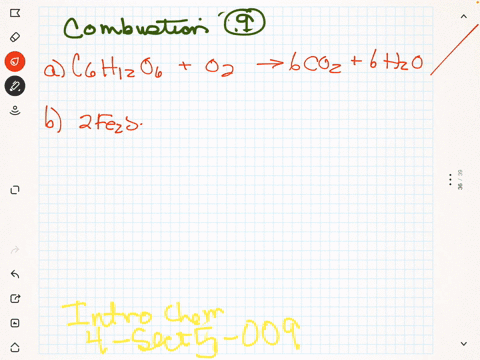 Combustion 9
a) C6H12O6 + O2 → 6CO2 + 6H2O
b) 2Fe2S
Intro Chem
4-Sect5-009